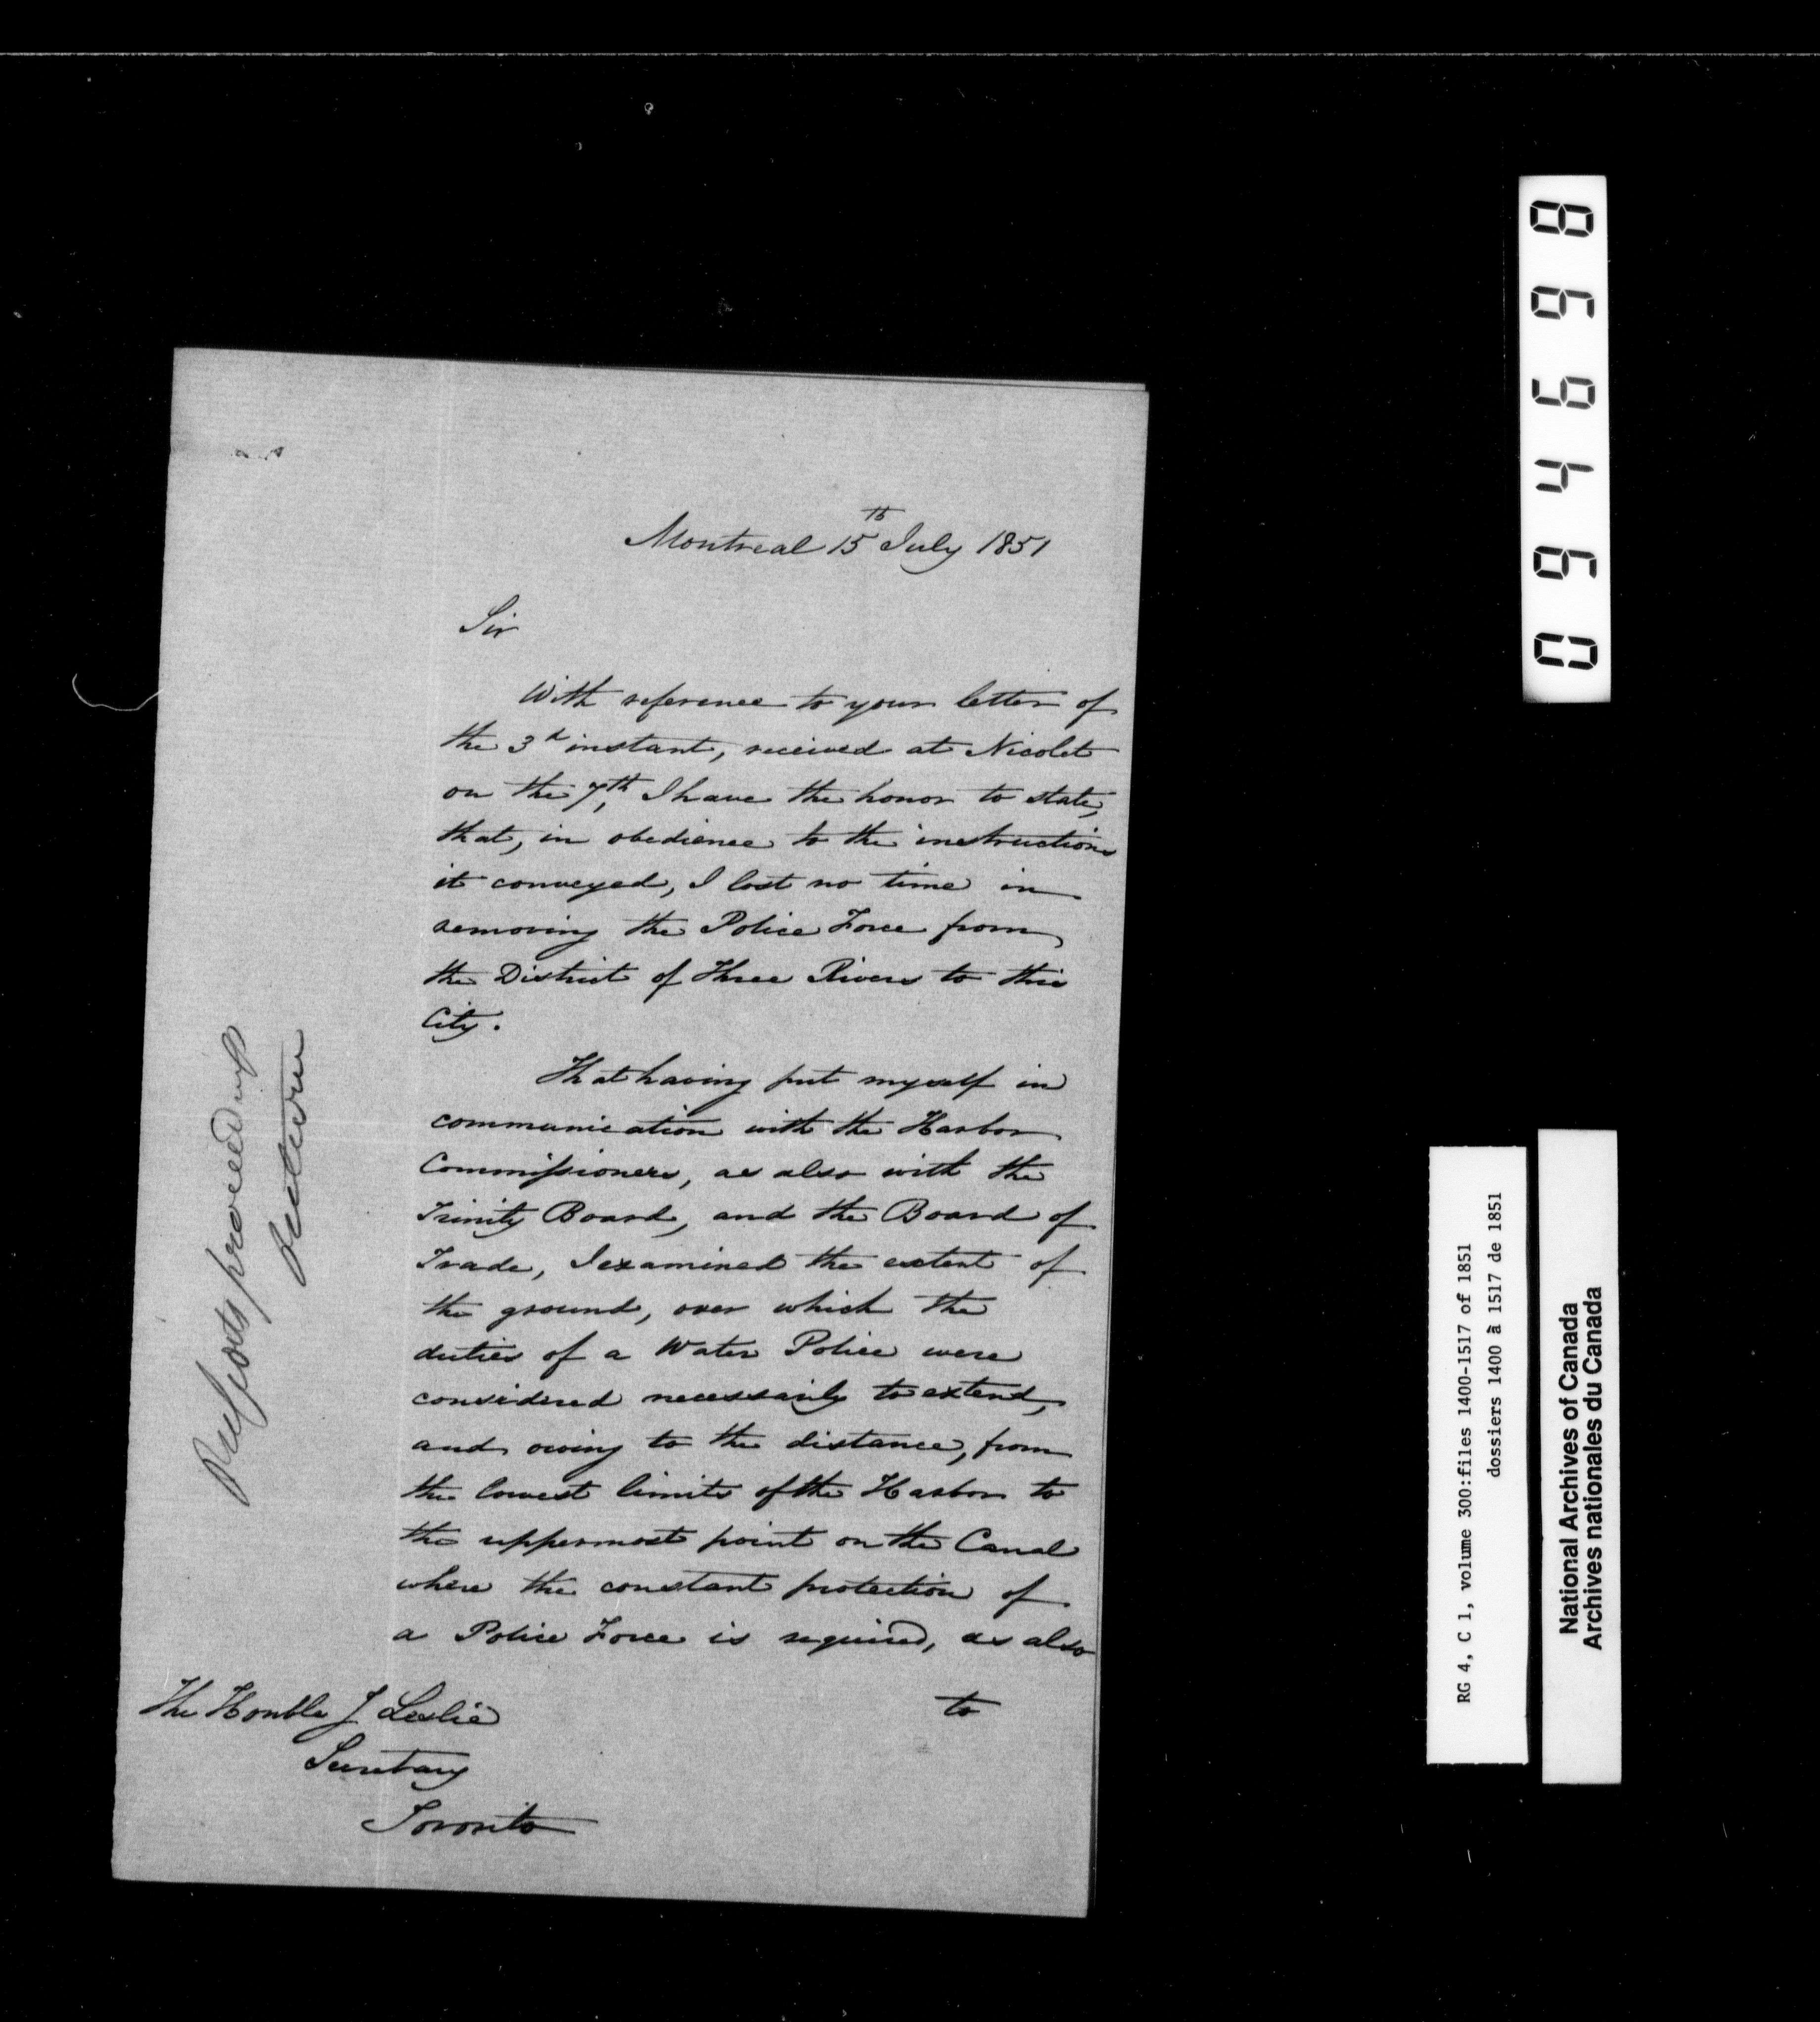 Montreal 15th July 1851
Sir
With reference to your letter of
the 3d instant, received at Nicolet
on the 7th, I have the honor to state,
that, in obedience to the instructions
it conveyed, I lost no time in
removing the Police Force from
the District of Three Rivers to this
City.
That having put myself in
communication with the Harbor
Commissioners, as also with the
Trinity Board, and the Board of
Trade, I examined the extent of
the ground, over which the
duties of a Water Police were
considered necessarily to extend,
and owing to the distance, from
the lowest limits of the Harbor to
the uppermost point on the Canal
where the constant protection of
a Police Force is required, as also
to
The Honble J Leslie
Secretary
Toronto
proceedings
094698
RG 4, C 1, volume 300:files 1400-1517 of 1851
dossiers 1400 à 1517 de 1851
National Archives of Canada
Archives nationales du Canada